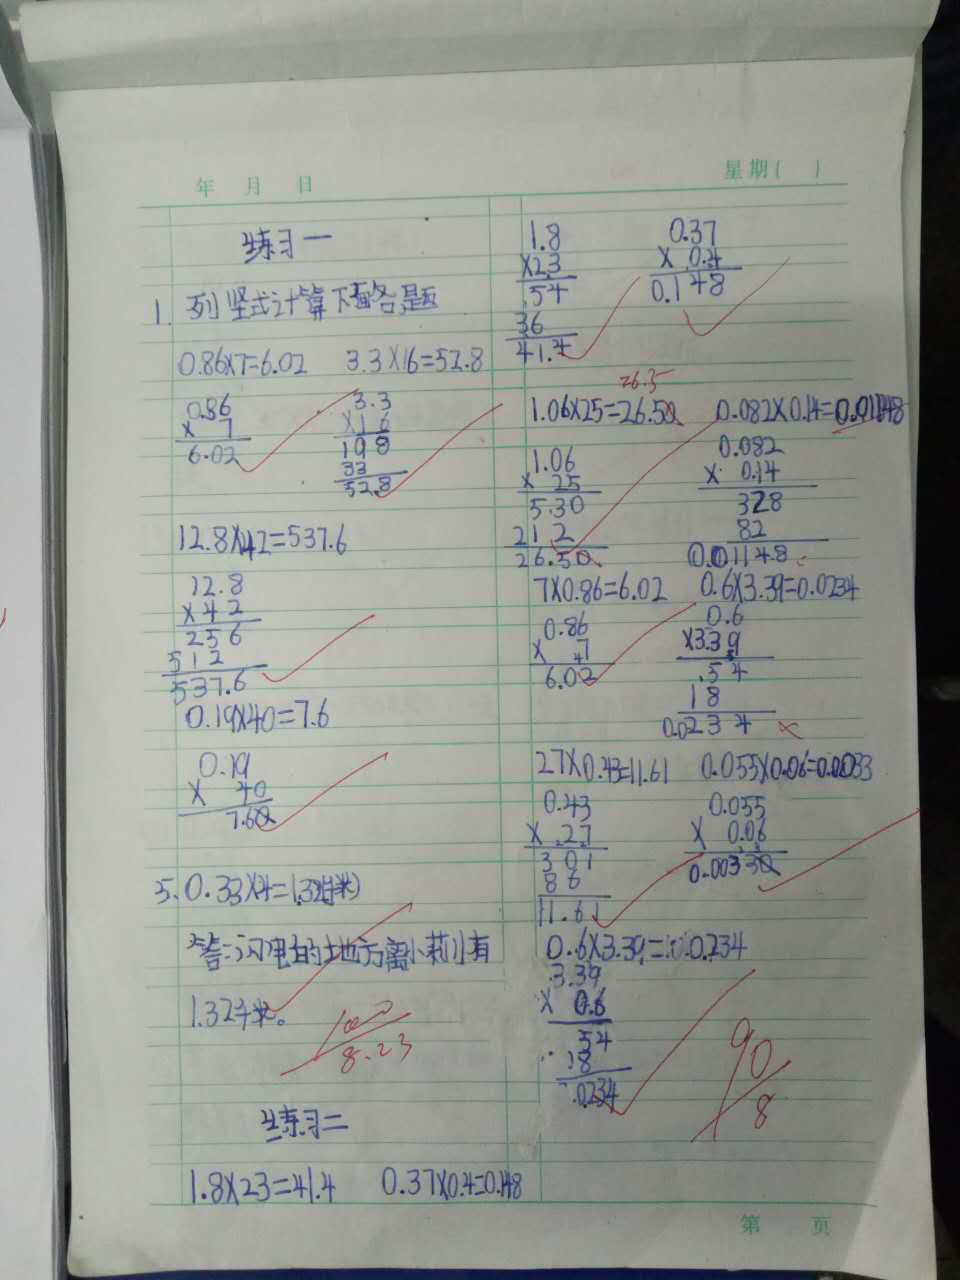 年 月 日
星期( )
练习一
1. 列竖式计算下面各题
0.86×7=6.02 3.3×16=52.8
0.86
× 7
6.02
3.3
×16
198
33
52.8
12.8×42=537.6
12.8
×42
256
512
537.6
0.19×40=7.6
0.19
× 40
7.60
5. 0.33×4=1.32(千米)
答:闪电的地方离小莉有
1.32千米。
100
8.23
练习二
1.8×23=41.4 0.37×0.4=0.148
1.8
×23
54
36
41.4
0.37
× 0.4
0.148
26.5
1.06×25=26.50 0.082×0.14=0.01148
1.06
× 25
5.30
212
26.50
0.082
× 0.14
328
82
0.01148
7×0.86=6.02 0.6×3.39=0.0234
0.86
× 7
6.02
0.6
×3.39
54
18
0.0234
27×0.43=11.61 0.055×0.06=0.0033
0.43
× 27
301
86
11.61
0.055
× 0.06
0.00330
0.6×3.39=0.0234
3.39
× 0.6
54
18
.0234
90
8
第 页